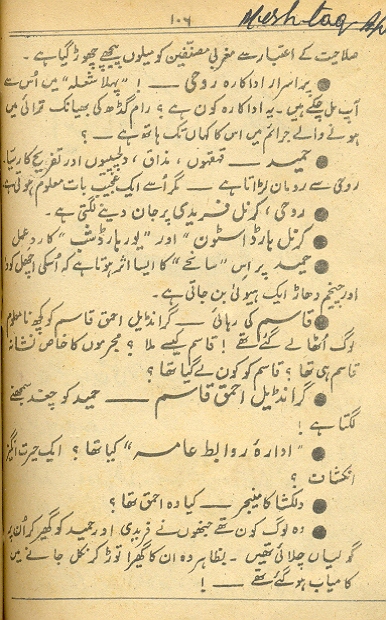 ۱۰۶
Mushtaq
صلاحیت کے اعتبار سے مغربی مصنفین کو میلوں پیچھے چھوڑ گیا ہے۔
● پراسرار اداکارہ روحی — ! "پہلا شعلہ" میں اُس سے
آپ مل چکے ہیں۔ یہ اداکارہ کون ہے؟ رام گڈھ کی بھیانک ترائی میں
ہونے والے جرائم میں اس کا کہاں تک ہاتھ ہے — ؟
● حمید — قہقہوں، مذاق، دلچسپیوں اور تفریح کا رسیا۔
روحی سے رومان لڑاتا ہے — مگر اُسے ایک عجیب بات معلوم ہوتی ہے
● روحی، کرنل فریدی پر جان دینے لگتی ہے۔
● کرنل ہارڈ اسٹون" اور "یور ہارڈشٹ" کا ردعمل
● حمید پر اس "سانحے" کا ایسا اثر ہوتا ہے کہ اُسکی اچھل کود
اور چیخم دھاڑ ایک ہیولیٰ بن جاتی ہے۔
● قاسم کی رہائی — گرانڈیل احمق قاسم کو کچھ نامعلوم
لوگ اُٹھا لے گئے تھے! قاسم کیسے ملا؟ مجرموں کا خاص نشانہ
قاسم ہی تھا؟ قاسم کو کون لے گیا تھا؟
● گرانڈیل احمق قاسم — حمید کو چغد سمجھنے
لگتا ہے!
● "ادارۂ روابط عامہ" کیا تھا؟ ایک حیرت انگیز
انکشاف؟
● دلکشا کا مینجر — کیا وہ احمق تھا؟
● وہ لوگ کون تھے جنہوں نے فریدی اور حمید کو گھیر کر اُن پر
گولیاں چلائی تھیں۔ بظاہر وہ ان کا گھیرا توڑ کر نکل جانے میں
کامیاب ہو گئے تھے — !